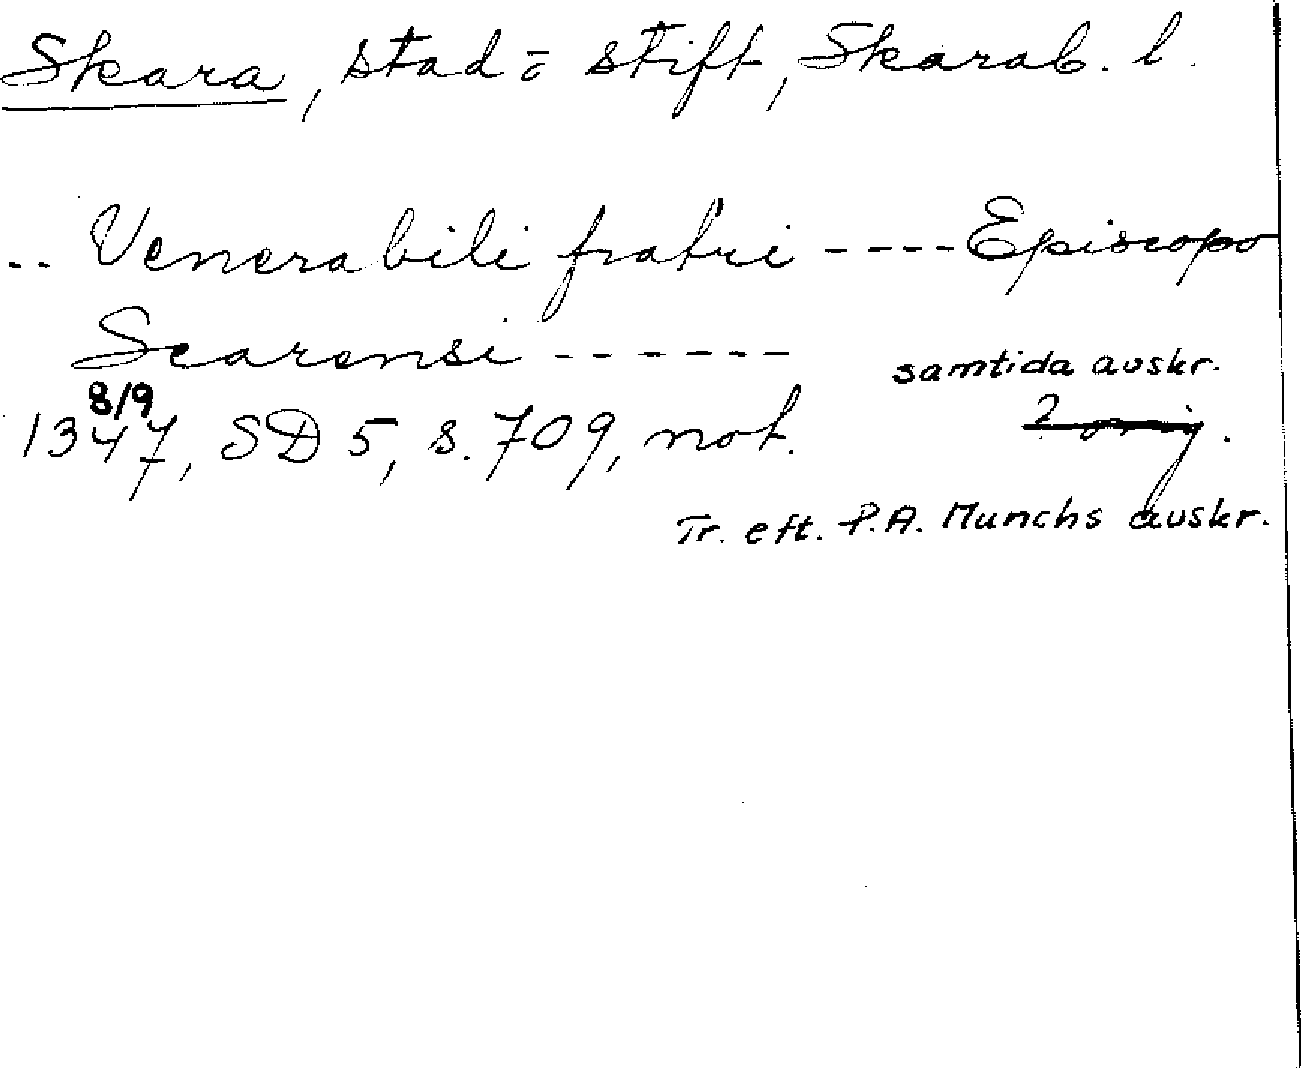 Skara, stad ö stift, Skarab. l.
.. Venerabili fratri ---- Episcopo
Scarensi -------
samtida avskr.
8/9
1347, SD 5, s. 709, not. 2 orig.
Tr. eft. P.A. Munchs avskr.